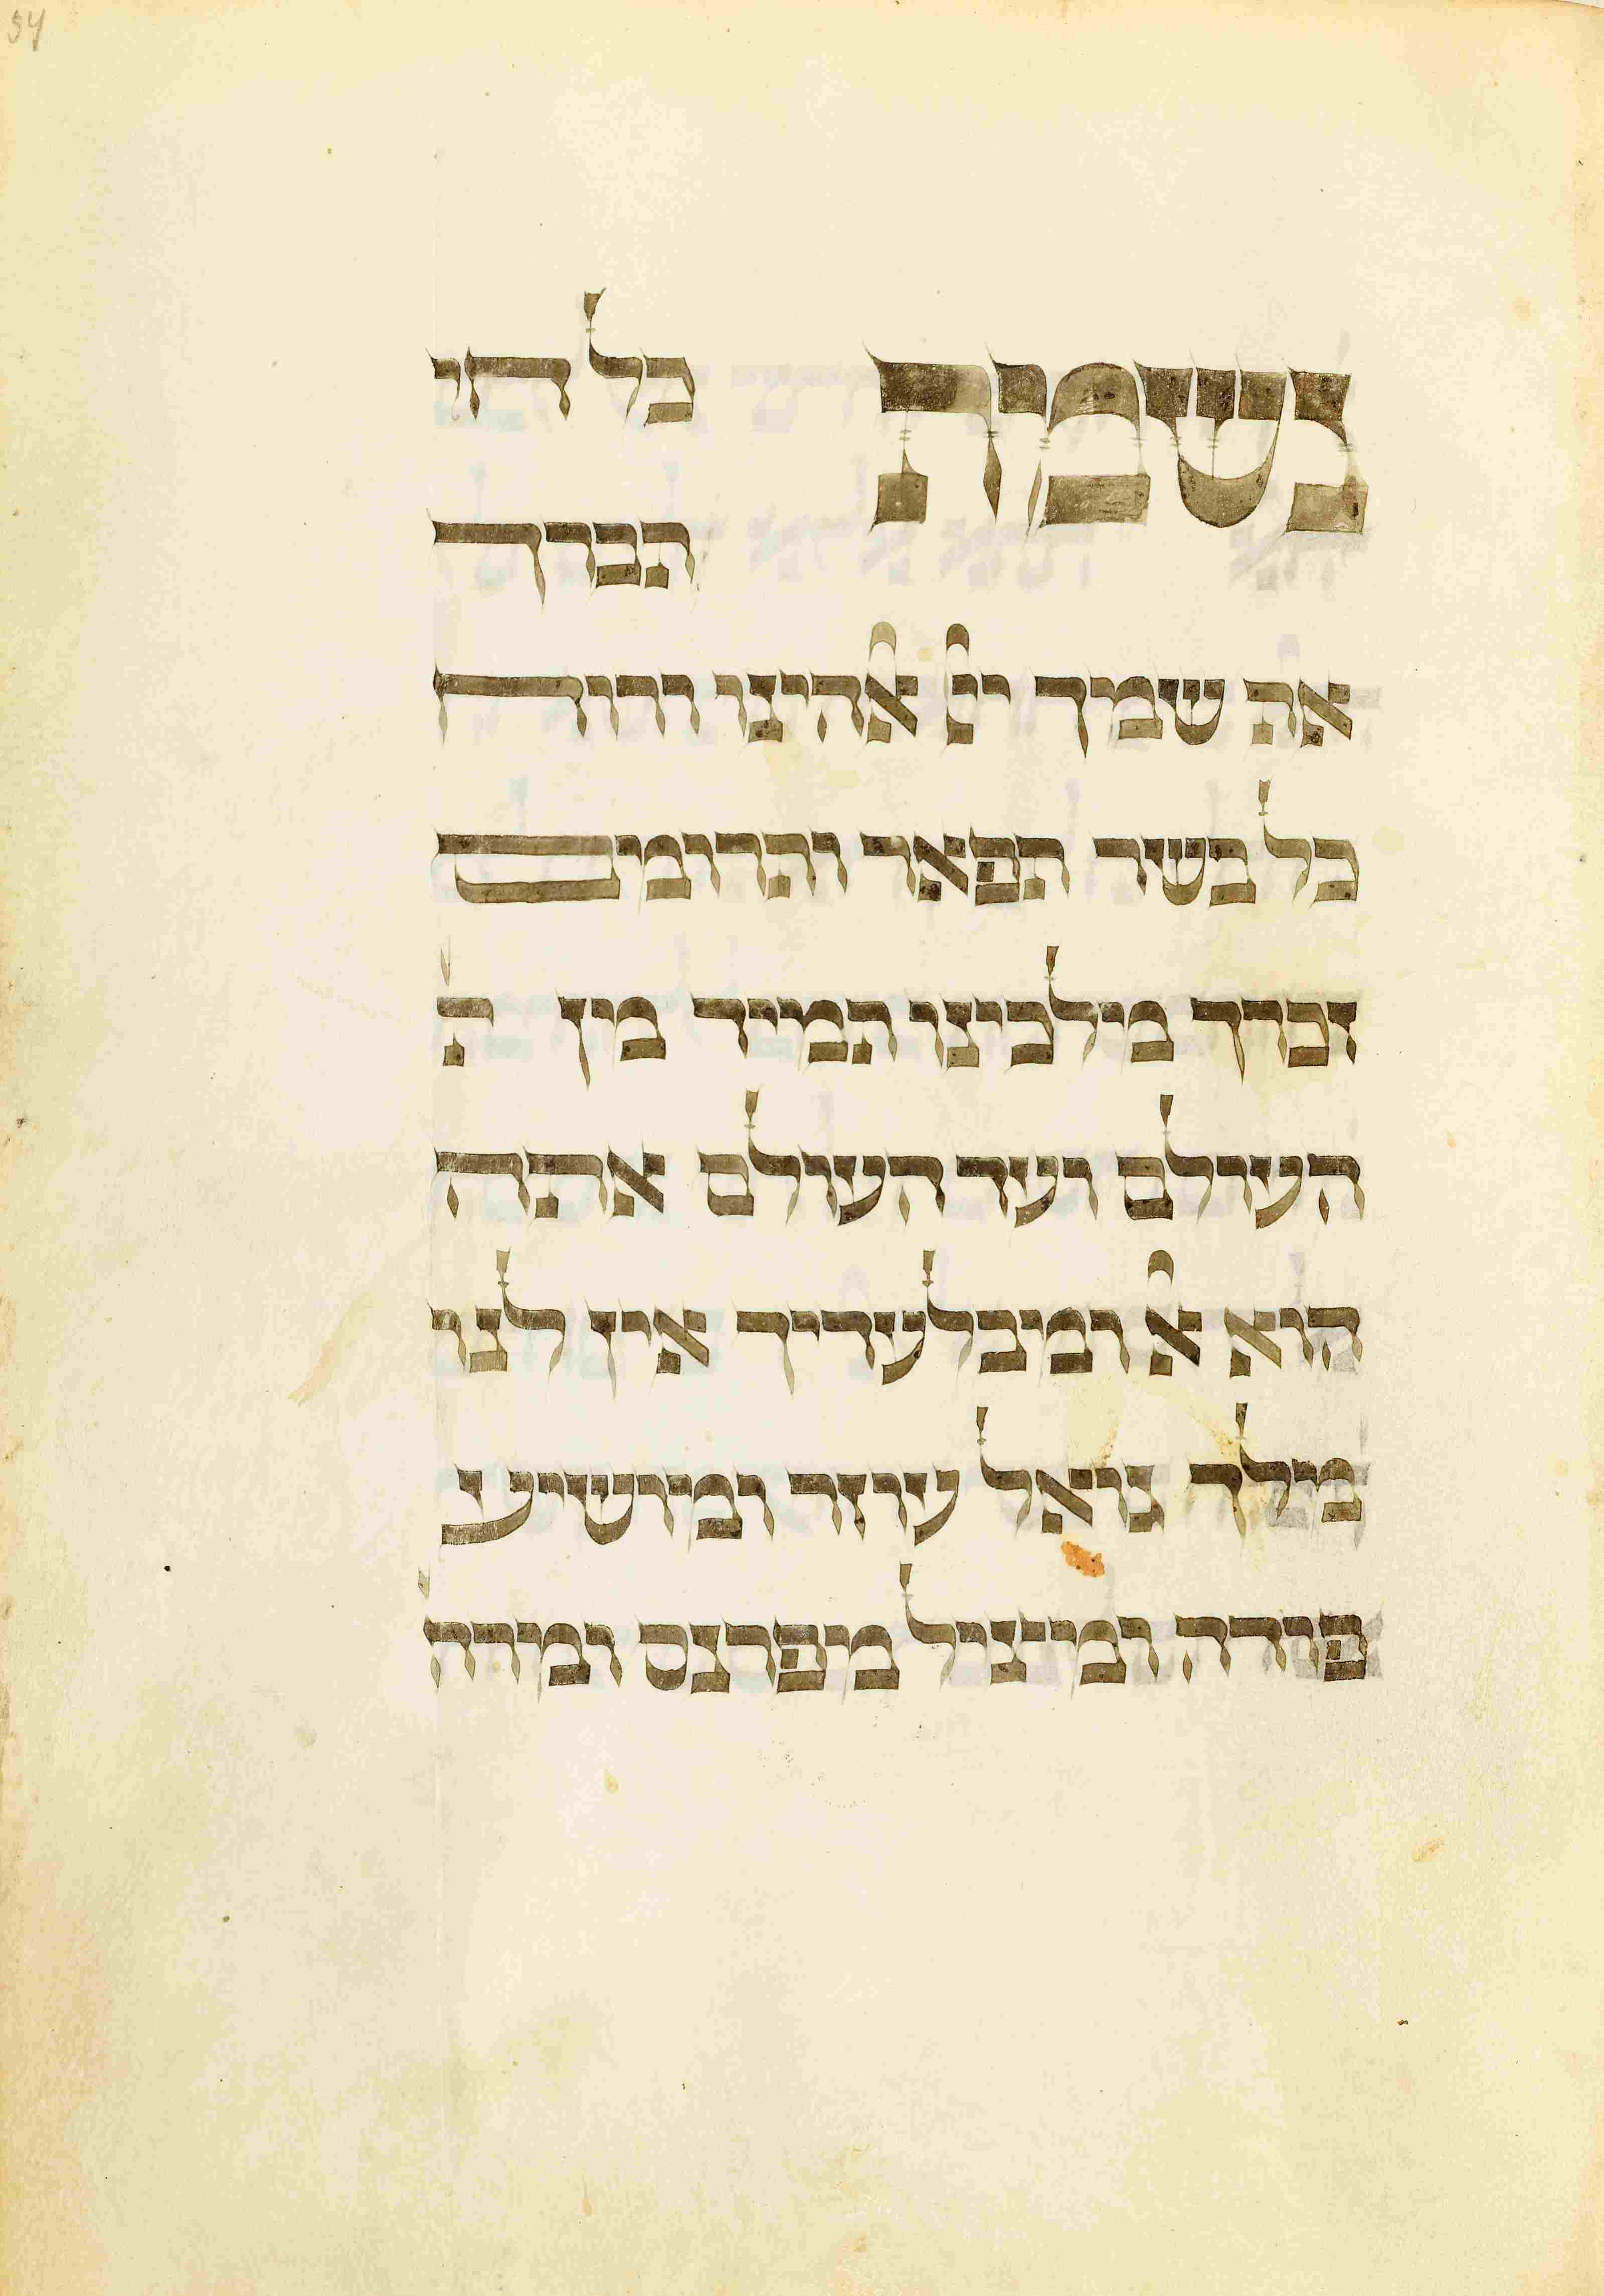 54
נשמת כל חי
תברך
את שמך יי אלהינו ורוח
כל בשר תפאר ותרומם
זכרך מלכינו תמיד מן ה
העולם ועד העולם אתה
הוא אל ומבלעדיך אין לנו
מלך גואל עוזר ומושיע
פודה ומציל מפרנס ומרח